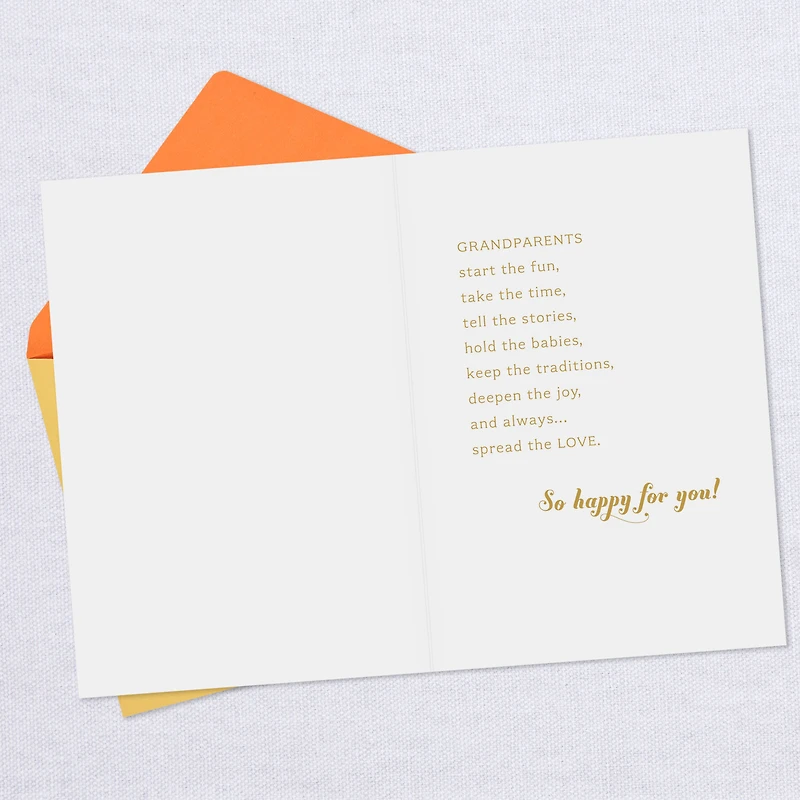 GRANDPARENTS
start the fun,
take the time,
tell the stories,
hold the babies,
keep the traditions,
deepen the joy,
and always...
spread the LOVE.
So happy for you!